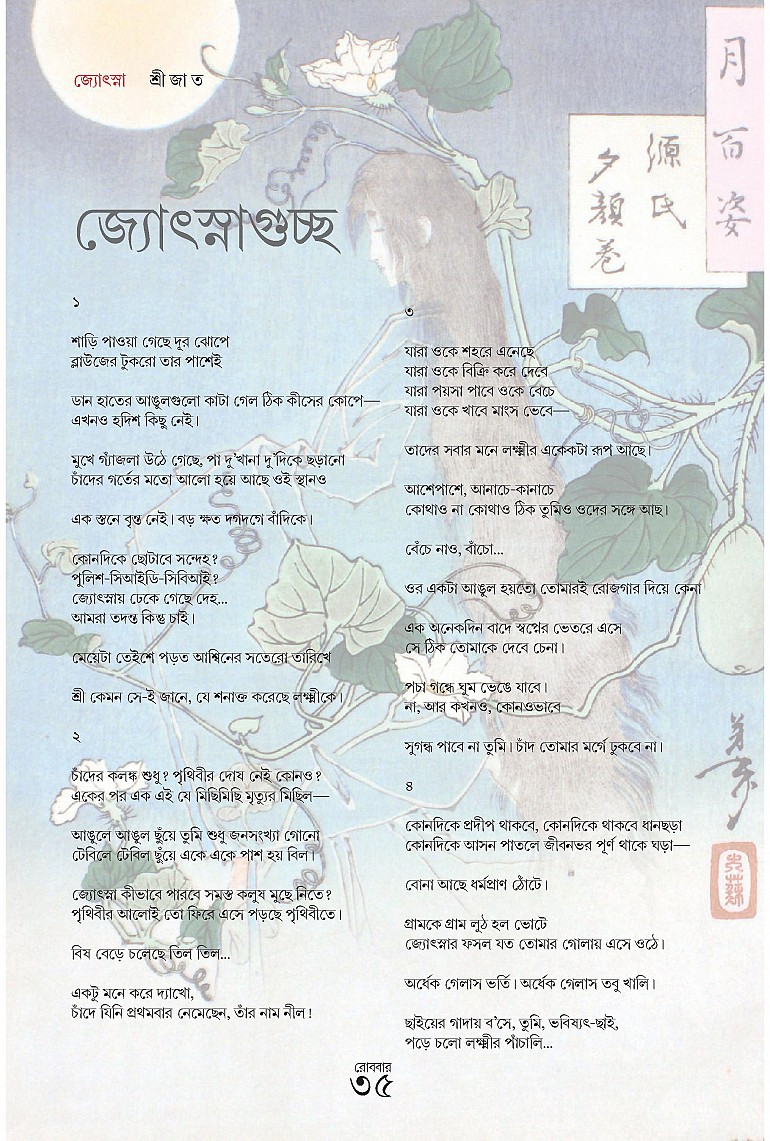 জ্যোৎস্না শ্রী জা ত
月百姿
源氏
夕顔巻
জ্যোৎস্নাগুচ্ছ
১
শাড়ি পাওয়া গেছে দূর ঝোপে
ব্লাউজের টুকরো তার পাশেই
ডান হাতের আঙুলগুলো কাটা গেল ঠিক কীসের কোপে—
এখনও হদিশ কিছু নেই।
মুখে গ্যাঁজলা উঠে গেছে, পা দু'খানা দু'দিকে ছড়ানো
চাঁদের গর্তের মতো আলো হয়ে আছে ওই স্থানও
এক স্তনে বৃন্ত নেই। বড় ক্ষত দগদগে বাঁদিকে।
কোনদিকে ছোটাবে সন্দেহ?
পুলিশ-সিআইডি-সিবিআই?
জ্যোৎস্নায় ঢেকে গেছে দেহ...
আমরা তদন্ত কিন্তু চাই।
মেয়েটা তেইশে পড়ত আশ্বিনের সতেরো তারিখে
শ্রী কেমন সে-ই জানে, যে শনাক্ত করেছে লক্ষ্মীকে।
২
চাঁদের কলঙ্ক শুধু? পৃথিবীর দোষ নেই কোনও?
একের পর এক এই যে মিছিমিছি মৃত্যুর মিছিল—
আঙুলে আঙুল ছুঁয়ে তুমি শুধু জনসংখ্যা গোনো
টেবিলে টেবিল ছুঁয়ে একে একে পাশ হয় বিল।
জ্যোৎস্না কীভাবে পারবে সমস্ত কলুষ মুছে নিতে?
পৃথিবীর আলোই তো ফিরে এসে পড়ছে পৃথিবীতে।
বিষ বেড়ে চলেছে তিল তিল...
একটু মনে করে দ্যাখো,
চাঁদে যিনি প্রথমবার নেমেছেন, তাঁর নাম নীল!
৩
যারা ওকে শহরে এনেছে
যারা ওকে বিক্রি করে দেবে
যারা পয়সা পাবে ওকে বেচে
যারা ওকে খাবে মাংস ভেবে—
তাদের সবার মনে লক্ষ্মীর একেকটা রূপ আছে।
আশেপাশে, আনাচে-কানাচে
কোথাও না কোথাও ঠিক তুমিও ওদের সঙ্গে আছ।
বেঁচে নাও, বাঁচো...
ওর একটা আঙুল হয়তো তোমারই রোজগার দিয়ে কেনা
এক অনেকদিন বাদে স্বপ্নের ভেতরে এসে
সে ঠিক তোমাকে দেবে চেনা।
পচা গন্ধে ঘুম ভেঙে যাবে।
না, আর কখনও, কোনওভাবে
সুগন্ধ পাবে না তুমি। চাঁদ তোমার মর্গে ঢুকবে না।
৪
কোনদিকে প্রদীপ থাকবে, কোনদিকে থাকবে ধানছড়া
কোনদিকে আসন পাতলে জীবনভর পূর্ণ থাকে ঘড়া—
বোনা আছে ধর্মপ্রাণ ঠোঁটে।
গ্রামকে গ্রাম লুঠ হল ভোটে
জ্যোৎস্নার ফসল যত তোমার গোলায় এসে ওঠে।
অর্ধেক গেলাস ভর্তি। অর্ধেক গেলাস তবু খালি।
ছাইয়ের গাদায় ব'সে, তুমি, ভবিষ্যৎ-ছাই,
পড়ে চলো লক্ষ্মীর পাঁচালি...
রোববার
৩৫